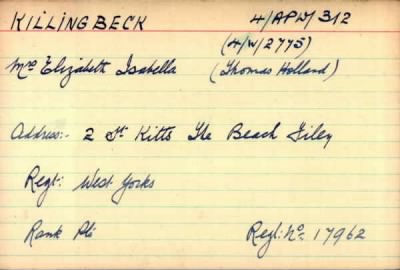 KILLINGBECK 4/APW/312
(4/W/2775)
Mrs Elizabeth Isabella (Thomas Holland)
Address:- 2 St. Kitts The Beach Filey
Regt: West Yorks
Rank Pte Regtl: No. 17962